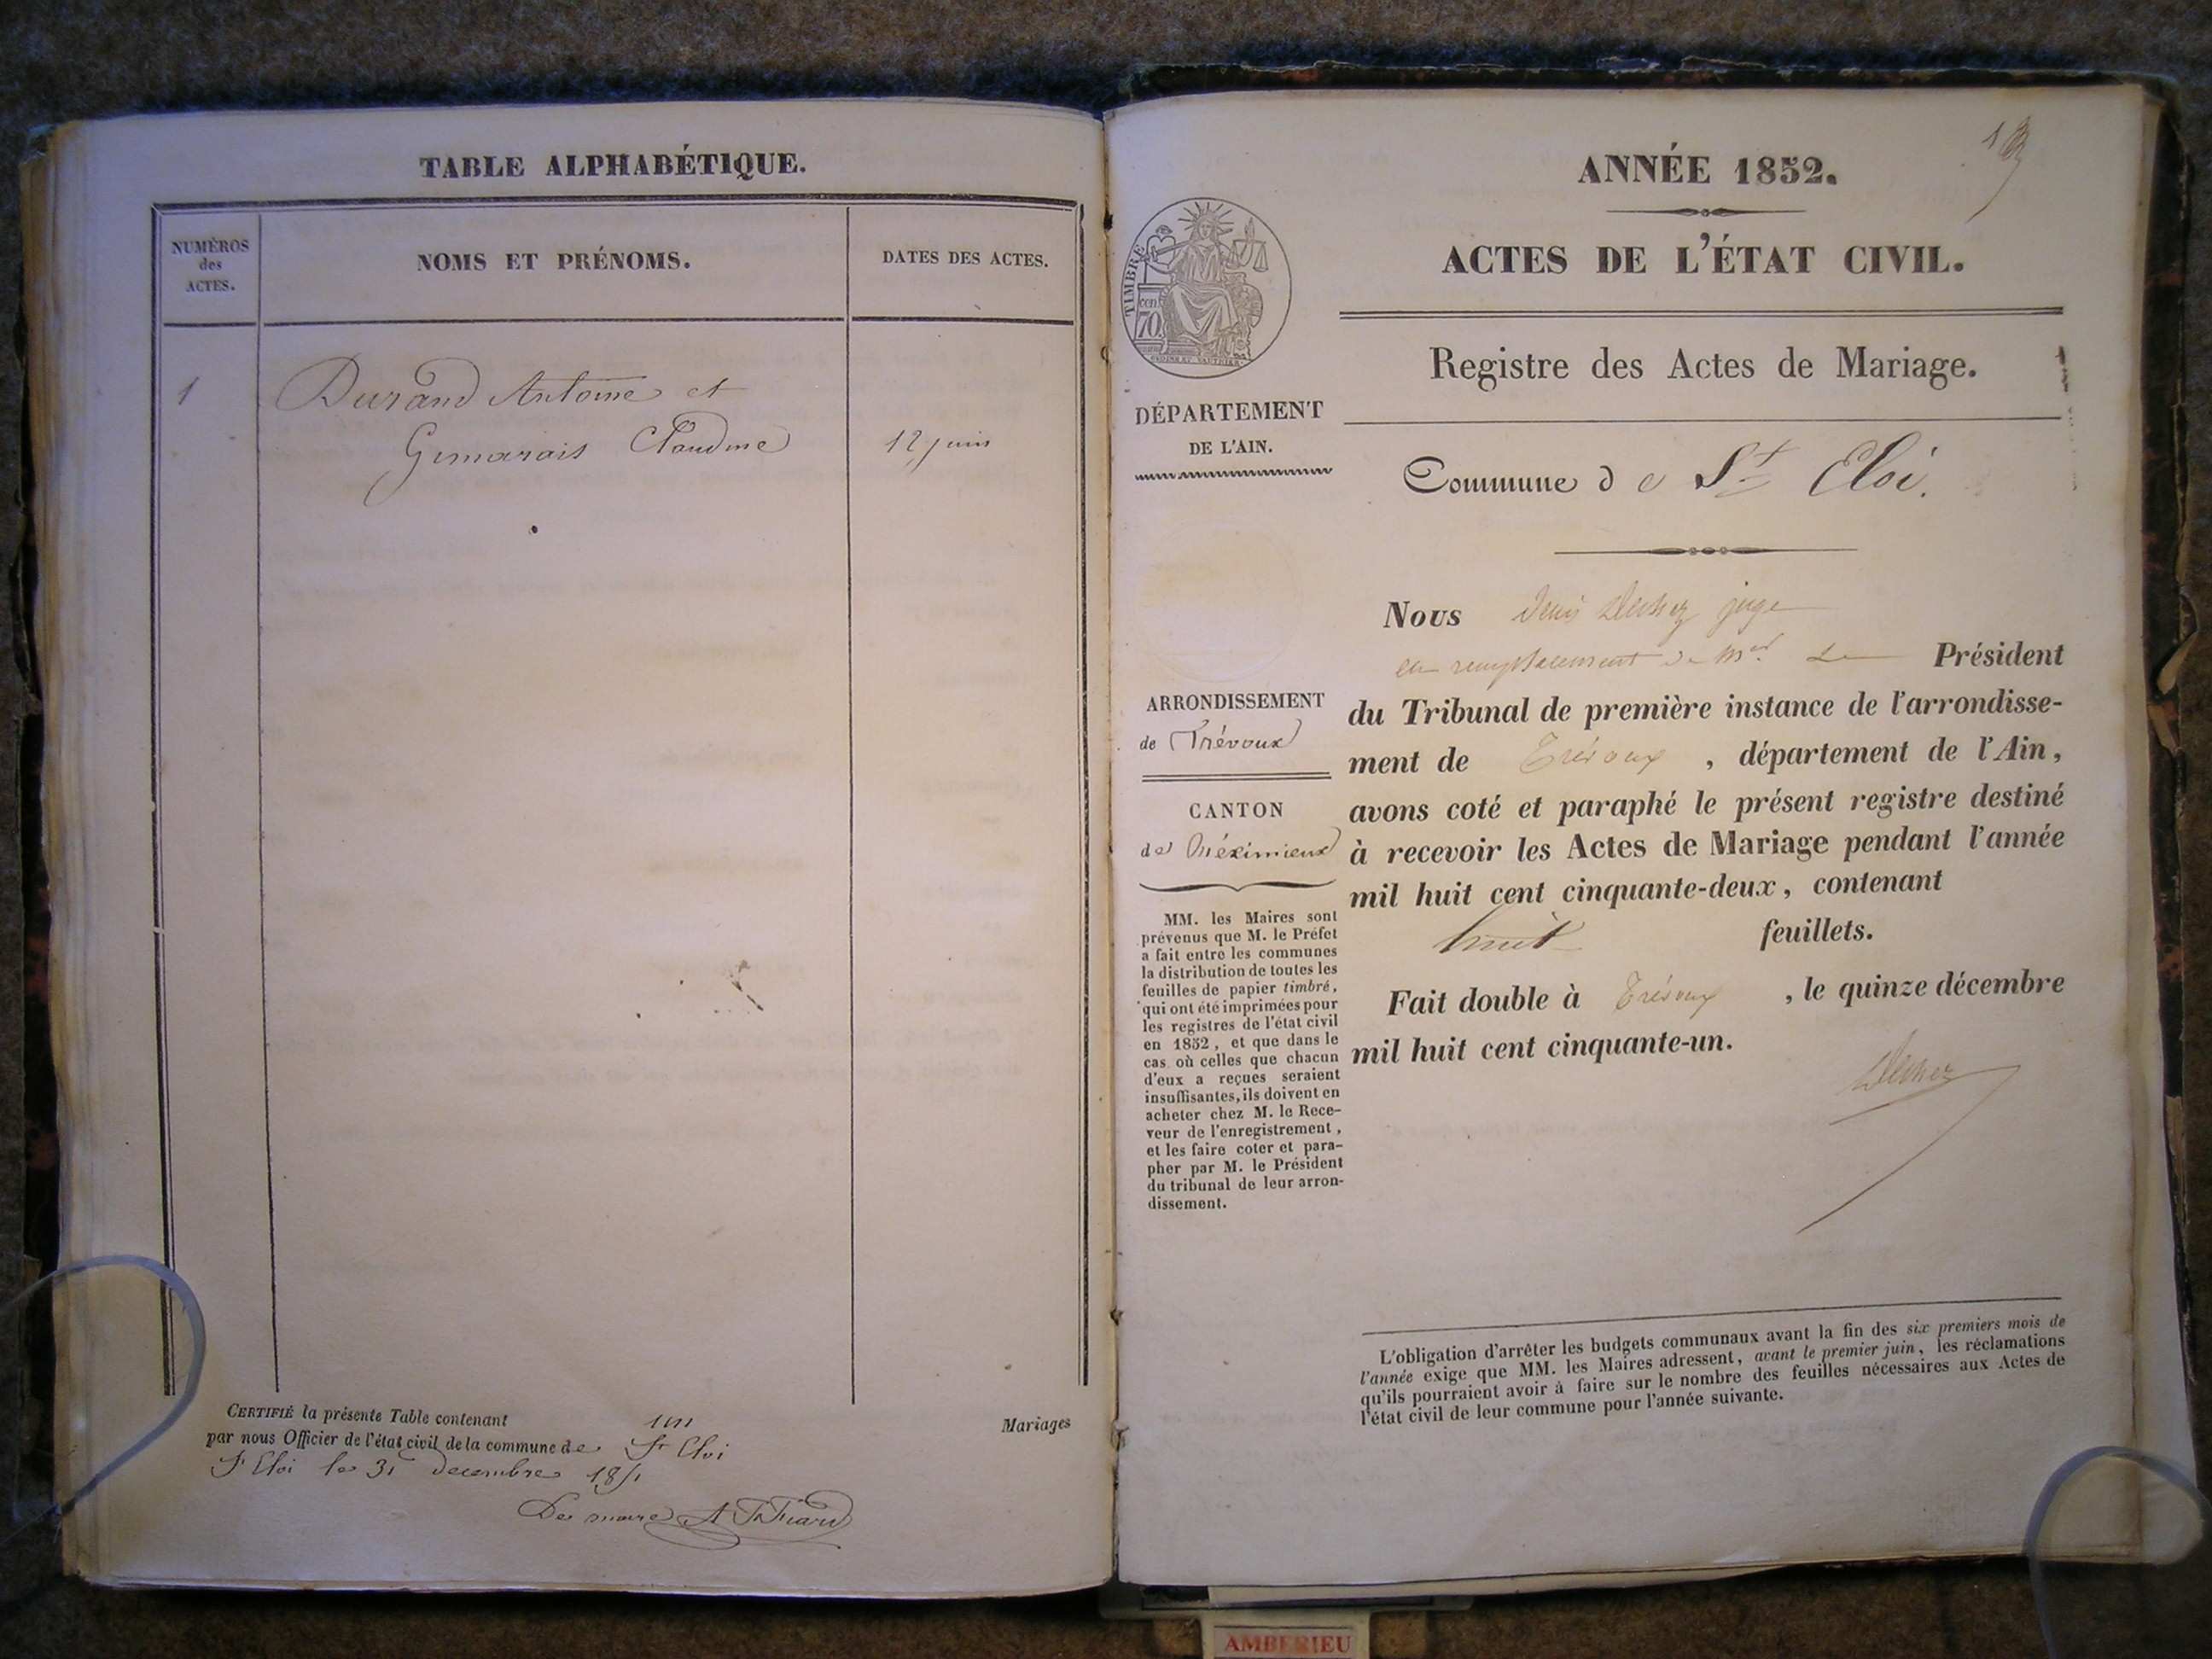 TABLE ALPHABÉTIQUE.
NUMÉROS
des
ACTES.
NOMS ET PRÉNOMS.
DATES DES ACTES.
1
Durand Antoine et
Gimarais Claudine
12 juin
CERTIFIÉ la présente Table contenant un Mariages
par nous Officier de l'état civil de la commune de St Eloi
St Eloi le 31 decembre 1851
Le maire
ANNÉE 1852.
ACTES DE L'ÉTAT CIVIL.
Registre des Actes de Mariage.
TIMBRE
cent
70
DÉPARTEMENT
DE L'AIN.
Commune de St Eloi.
ARRONDISSEMENT
de Trévoux
CANTON
de Méximieux
MM. les Maires sont
prévenus que M. le Préfet
a fait entre les communes
la distribution de toutes les
feuilles de papier timbré,
qui ont été imprimées pour
les registres de l'état civil
en 1852, et que dans le
cas où celles que chacun
d'eux a reçues seraient
insuffisantes, ils doivent en
acheter chez M. le Rece-
veur de l'enregistrement,
et les faire coter et para-
pher par M. le Président
du tribunal de leur arron-
dissement.
Nous Denis juge
en remplacement de Mr. Le Président
du Tribunal de première instance de l'arrondisse-
ment de Trévoux, département de l'Ain,
avons coté et paraphé le présent registre destiné
à recevoir les Actes de Mariage pendant l'année
mil huit cent cinquante-deux, contenant
huit feuillets.
Fait double à Trévoux, le quinze décembre
mil huit cent cinquante-un.
L'obligation d'arrêter les budgets communaux avant la fin des six premiers mois de
l'année exige que MM. les Maires adressent, avant le premier juin, les réclamations
qu'ils pourraient avoir à faire sur le nombre des feuilles nécessaires aux Actes de
l'état civil de leur commune pour l'année suivante.
AMBERIEU